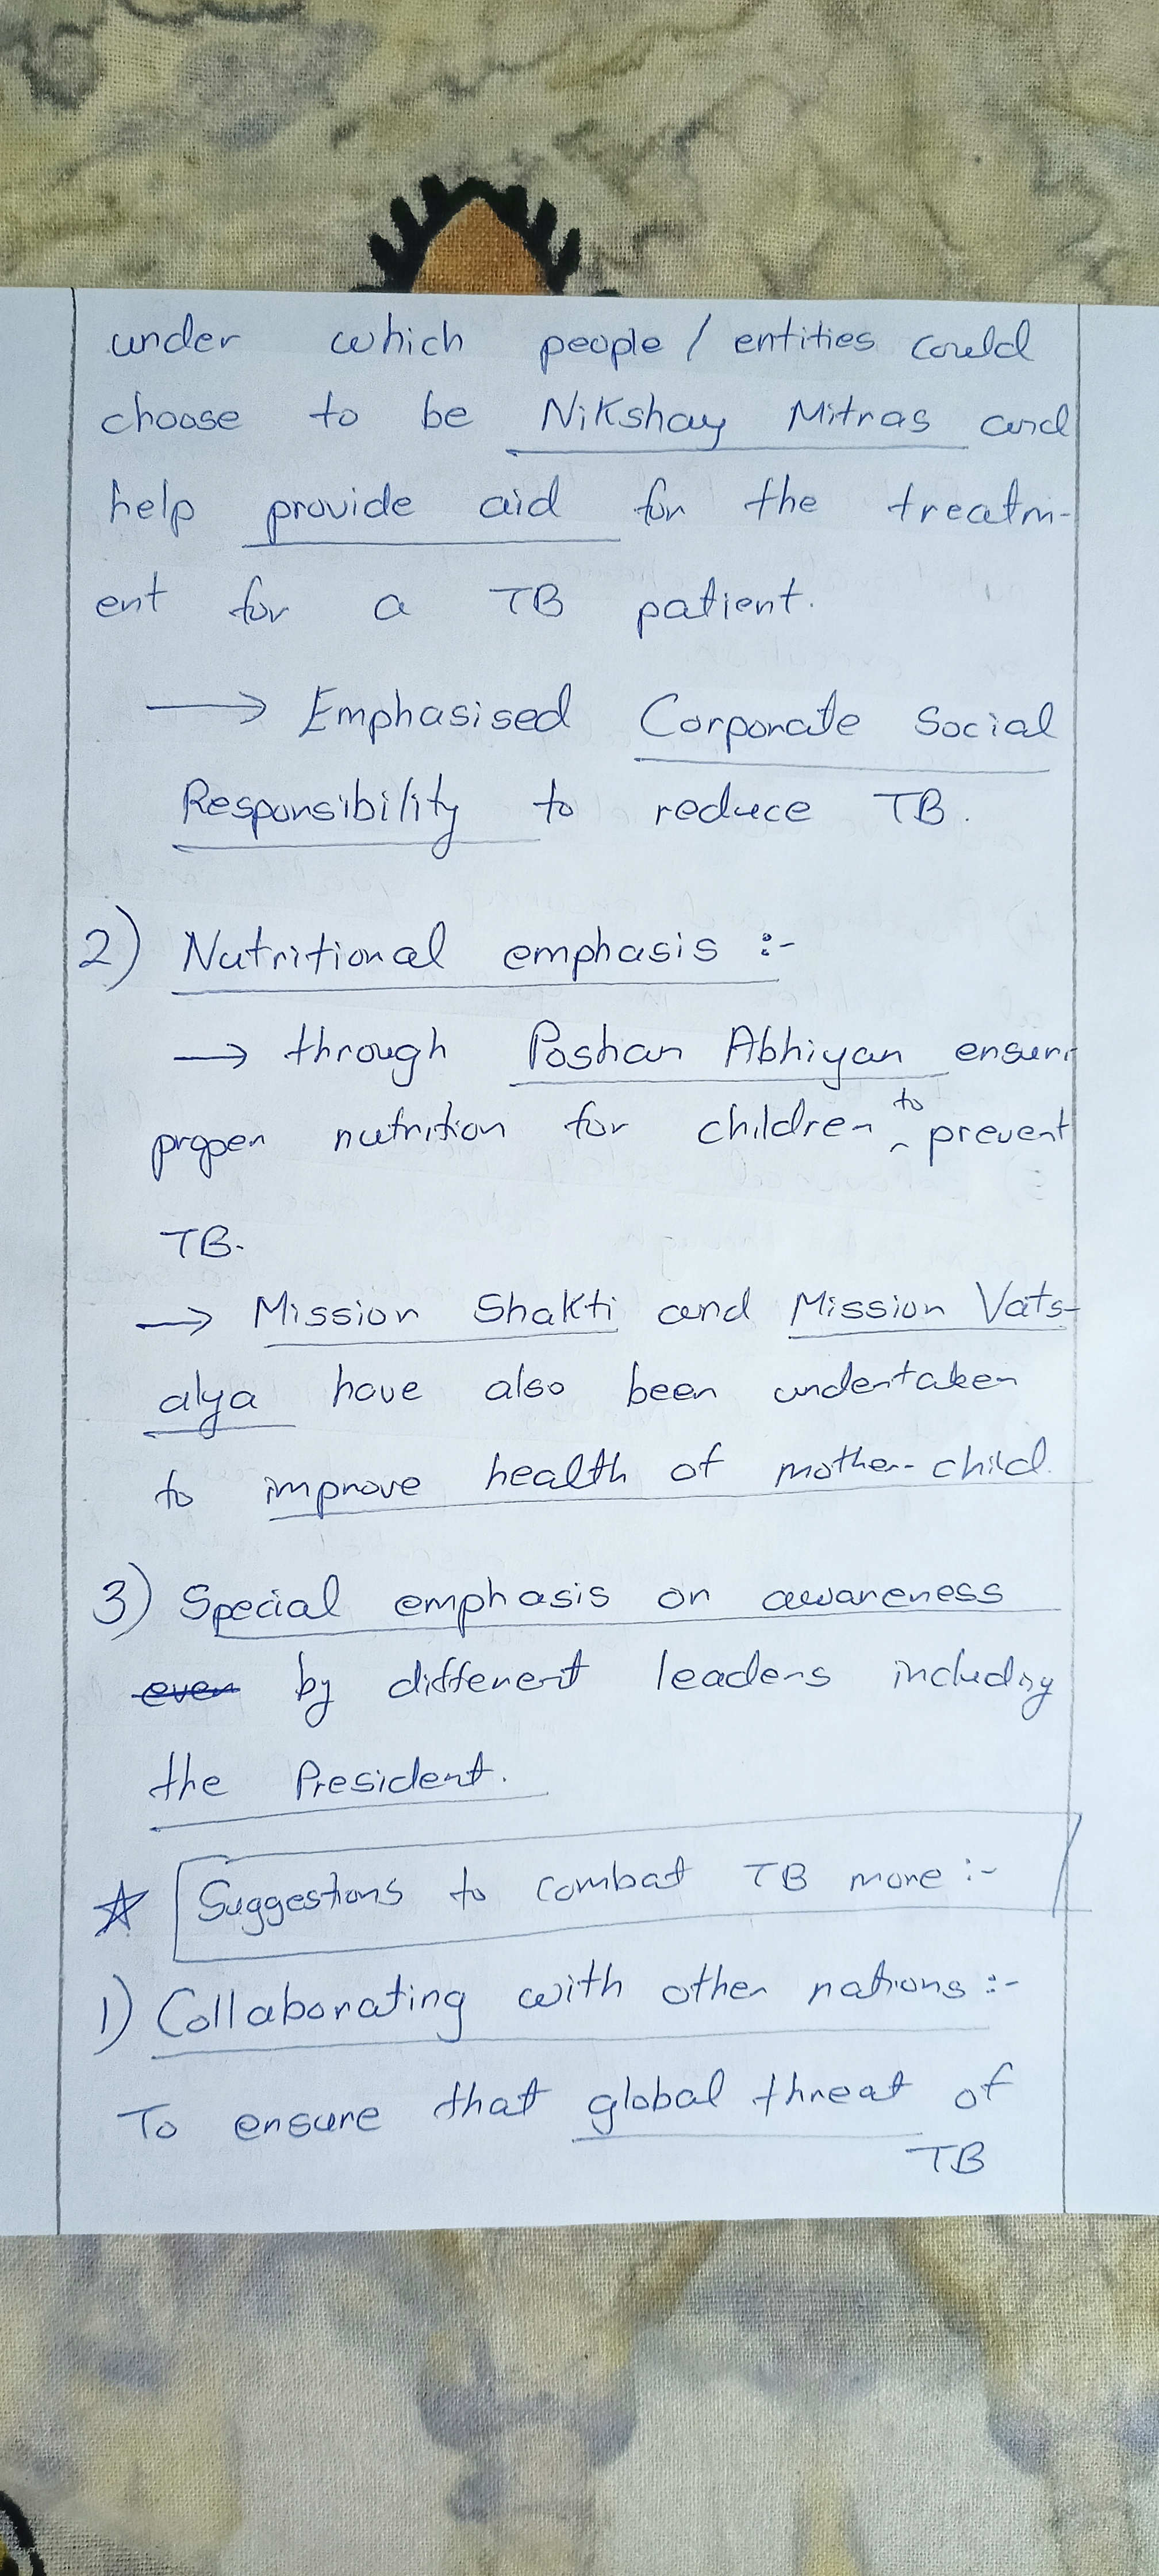 under which people / entities could
choose to be Nikshay Mitras and
help provide aid for the treatm-
ent for a TB patient.
→ Emphasised Corporate Social
Responsibility to reduce TB.
2) Nutritional emphasis :-
→ through Poshan Abhiyan ensure
proper nutrition for children to prevent
TB.
→ Mission Shakti and Mission Vats-
alya have also been undertaken
to improve health of mother-child.
3) Special emphasis on awareness
even by different leaders including
the President.
☆ Suggestions to combat TB more :-
1) Collaborating with other nations :-
To ensure that global threat of
TB